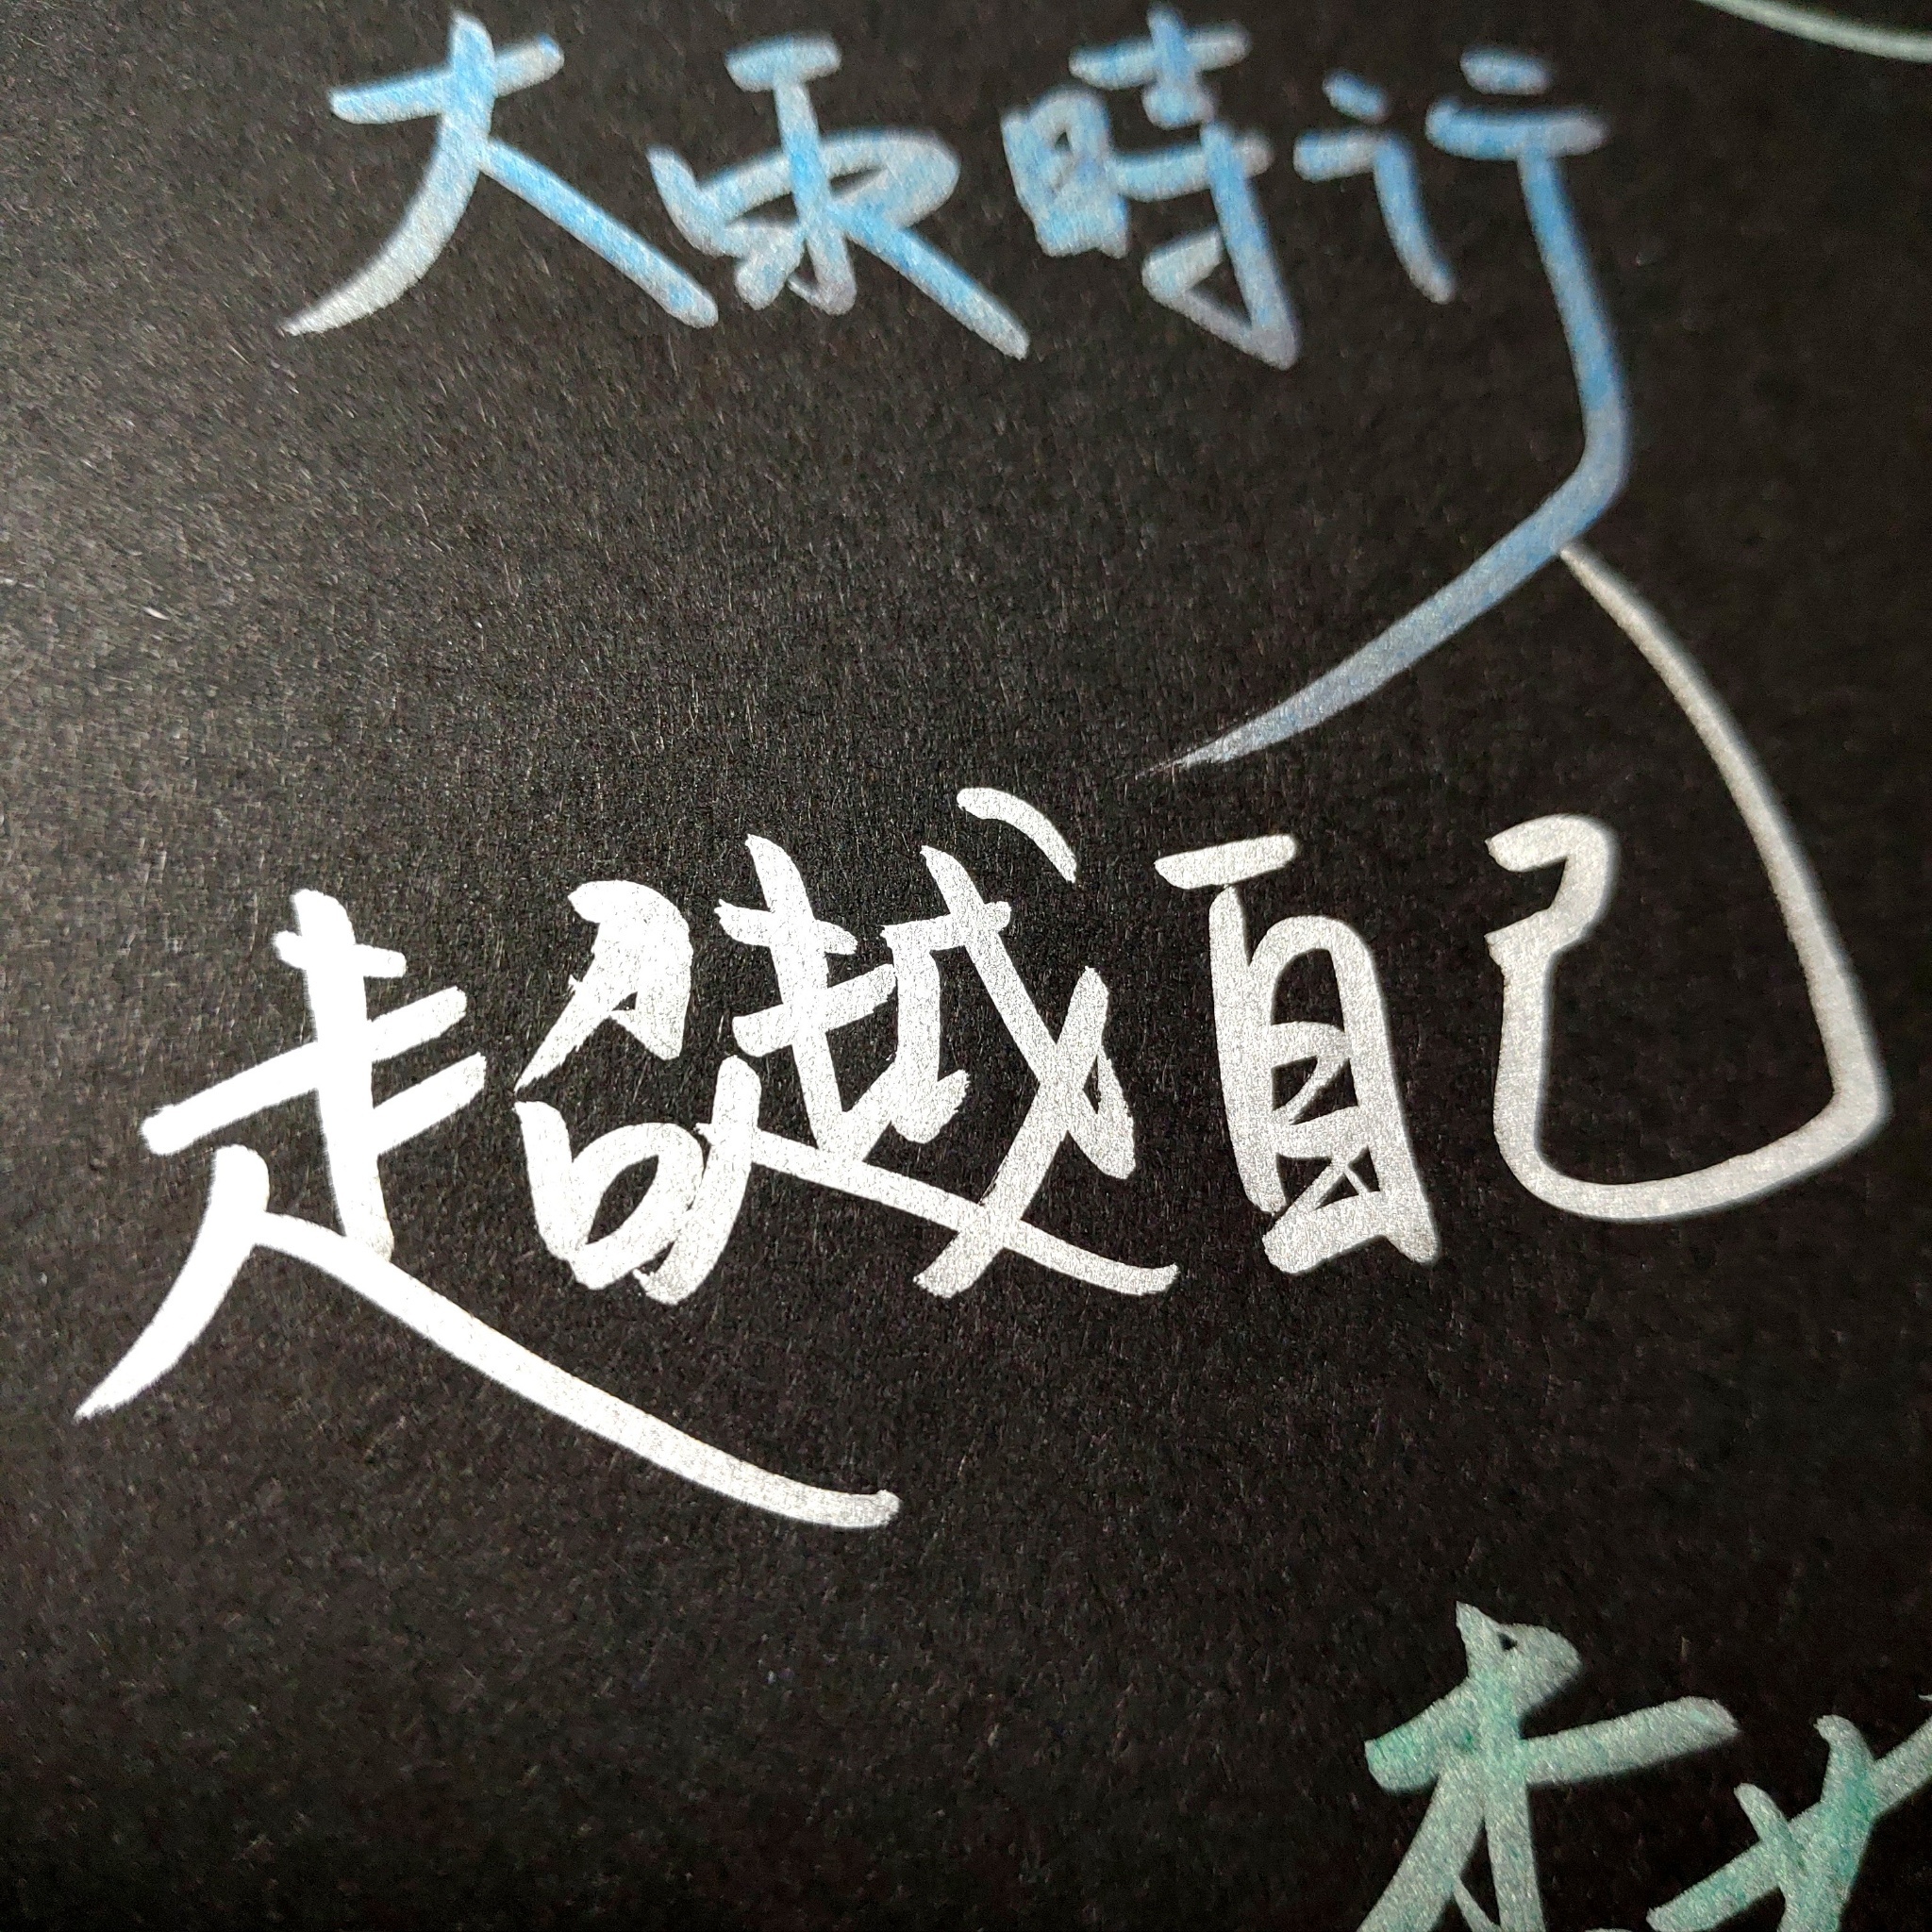 大雨時行
超越自己